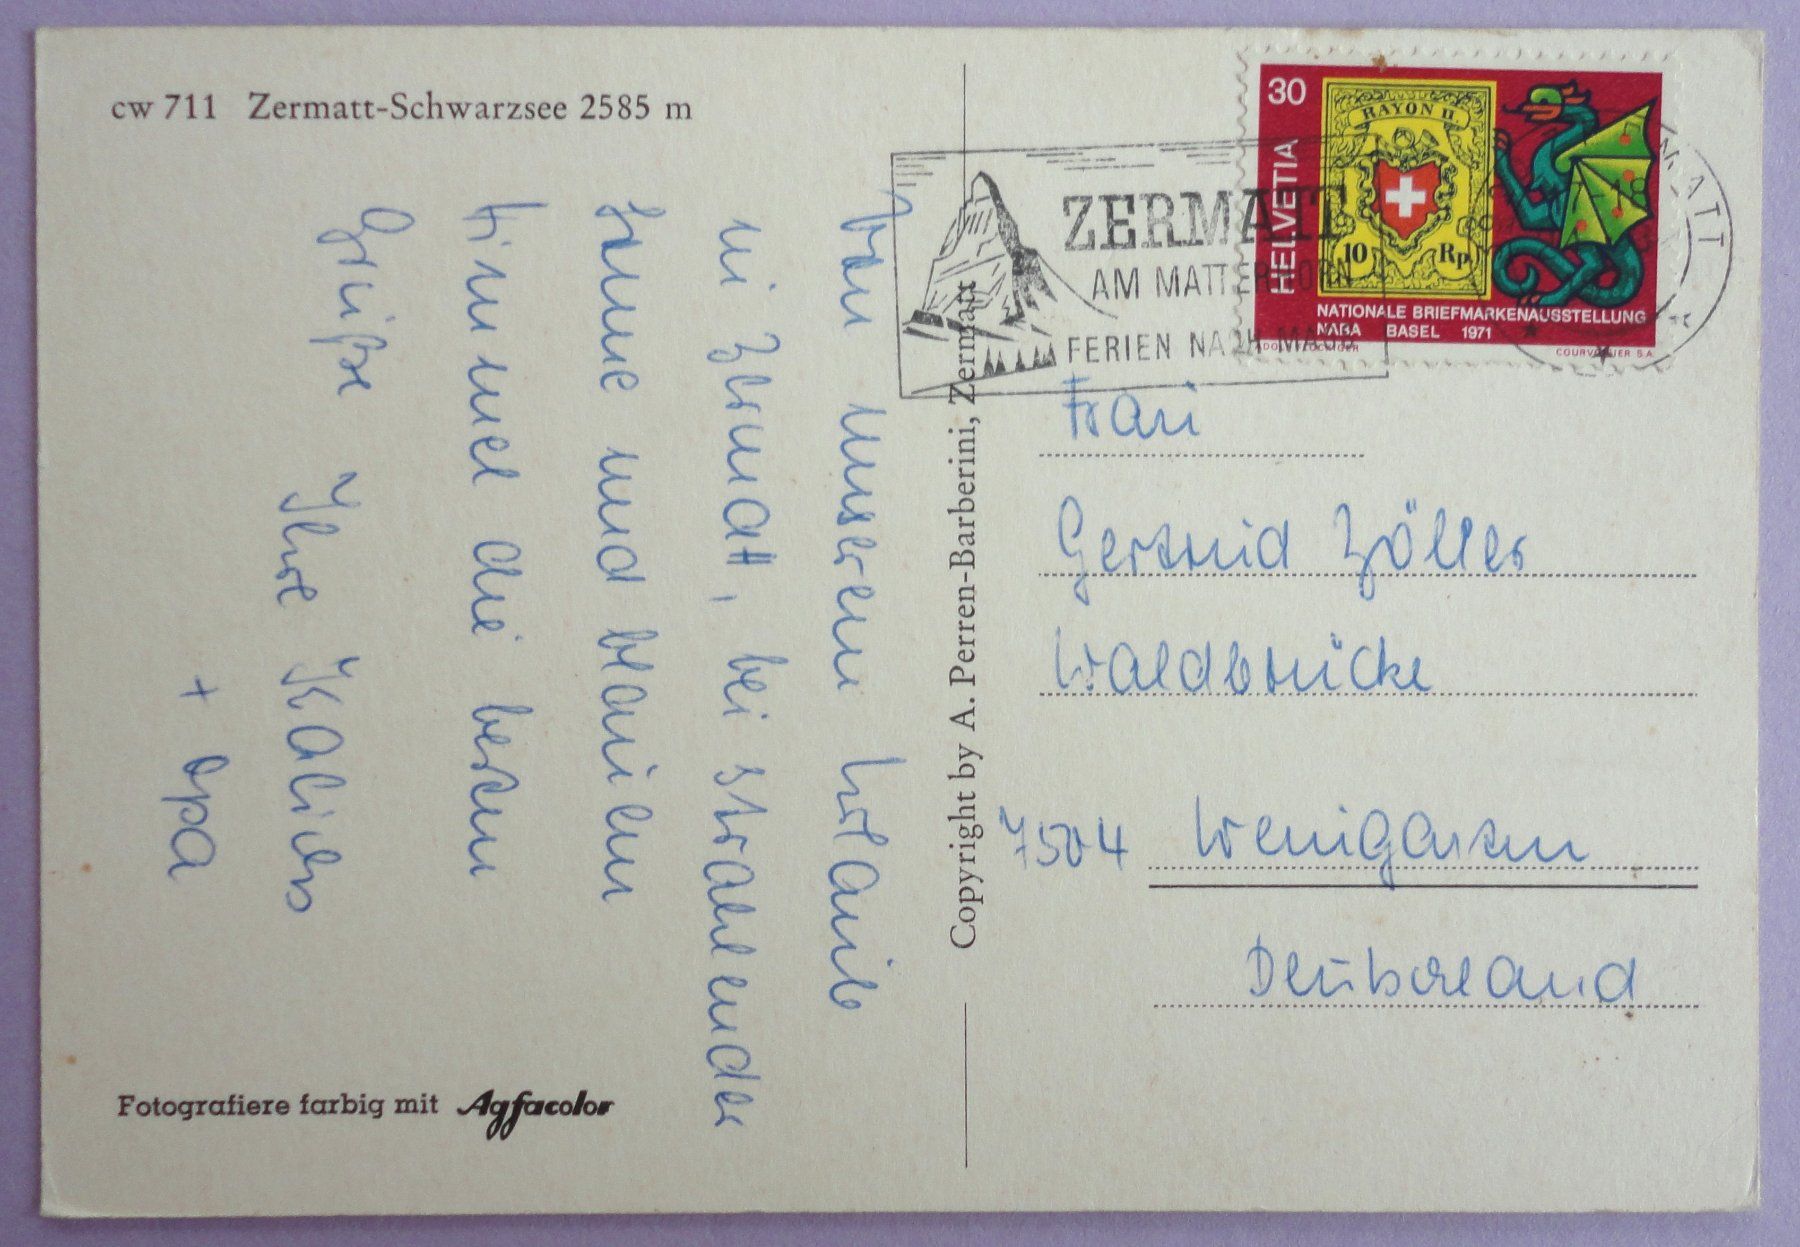 cw 711 Zermatt-Schwarzsee 2585 m
Von unserem Urlaub
in Zermatt, bei strahlender
Sonne und blauem
Himmel die besten
Grüße Ihre Kalides
+ Opa
Fotografiere farbig mit Agfacolor
Copyright by A. Perren-Barberini, Zermatt
ZERMATT
AM MATTERHORN
FERIEN NACH MASS
30
HELVETIA
RAYON II.
10 Rp
NATIONALE BRIEFMARKENAUSSTELLUNG
NABA BASEL 1971
COURVOISIER S.A.
Frau
Gertrud Zöller
Waldbrücke
7504 Weingarten
Deutschland